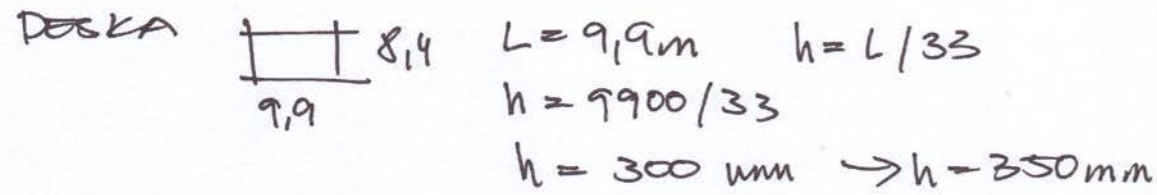 DESKA 8,4 L = 9,9m h = L/33
9,9 h = 9900/33
h = 300 mm → h = 350mm